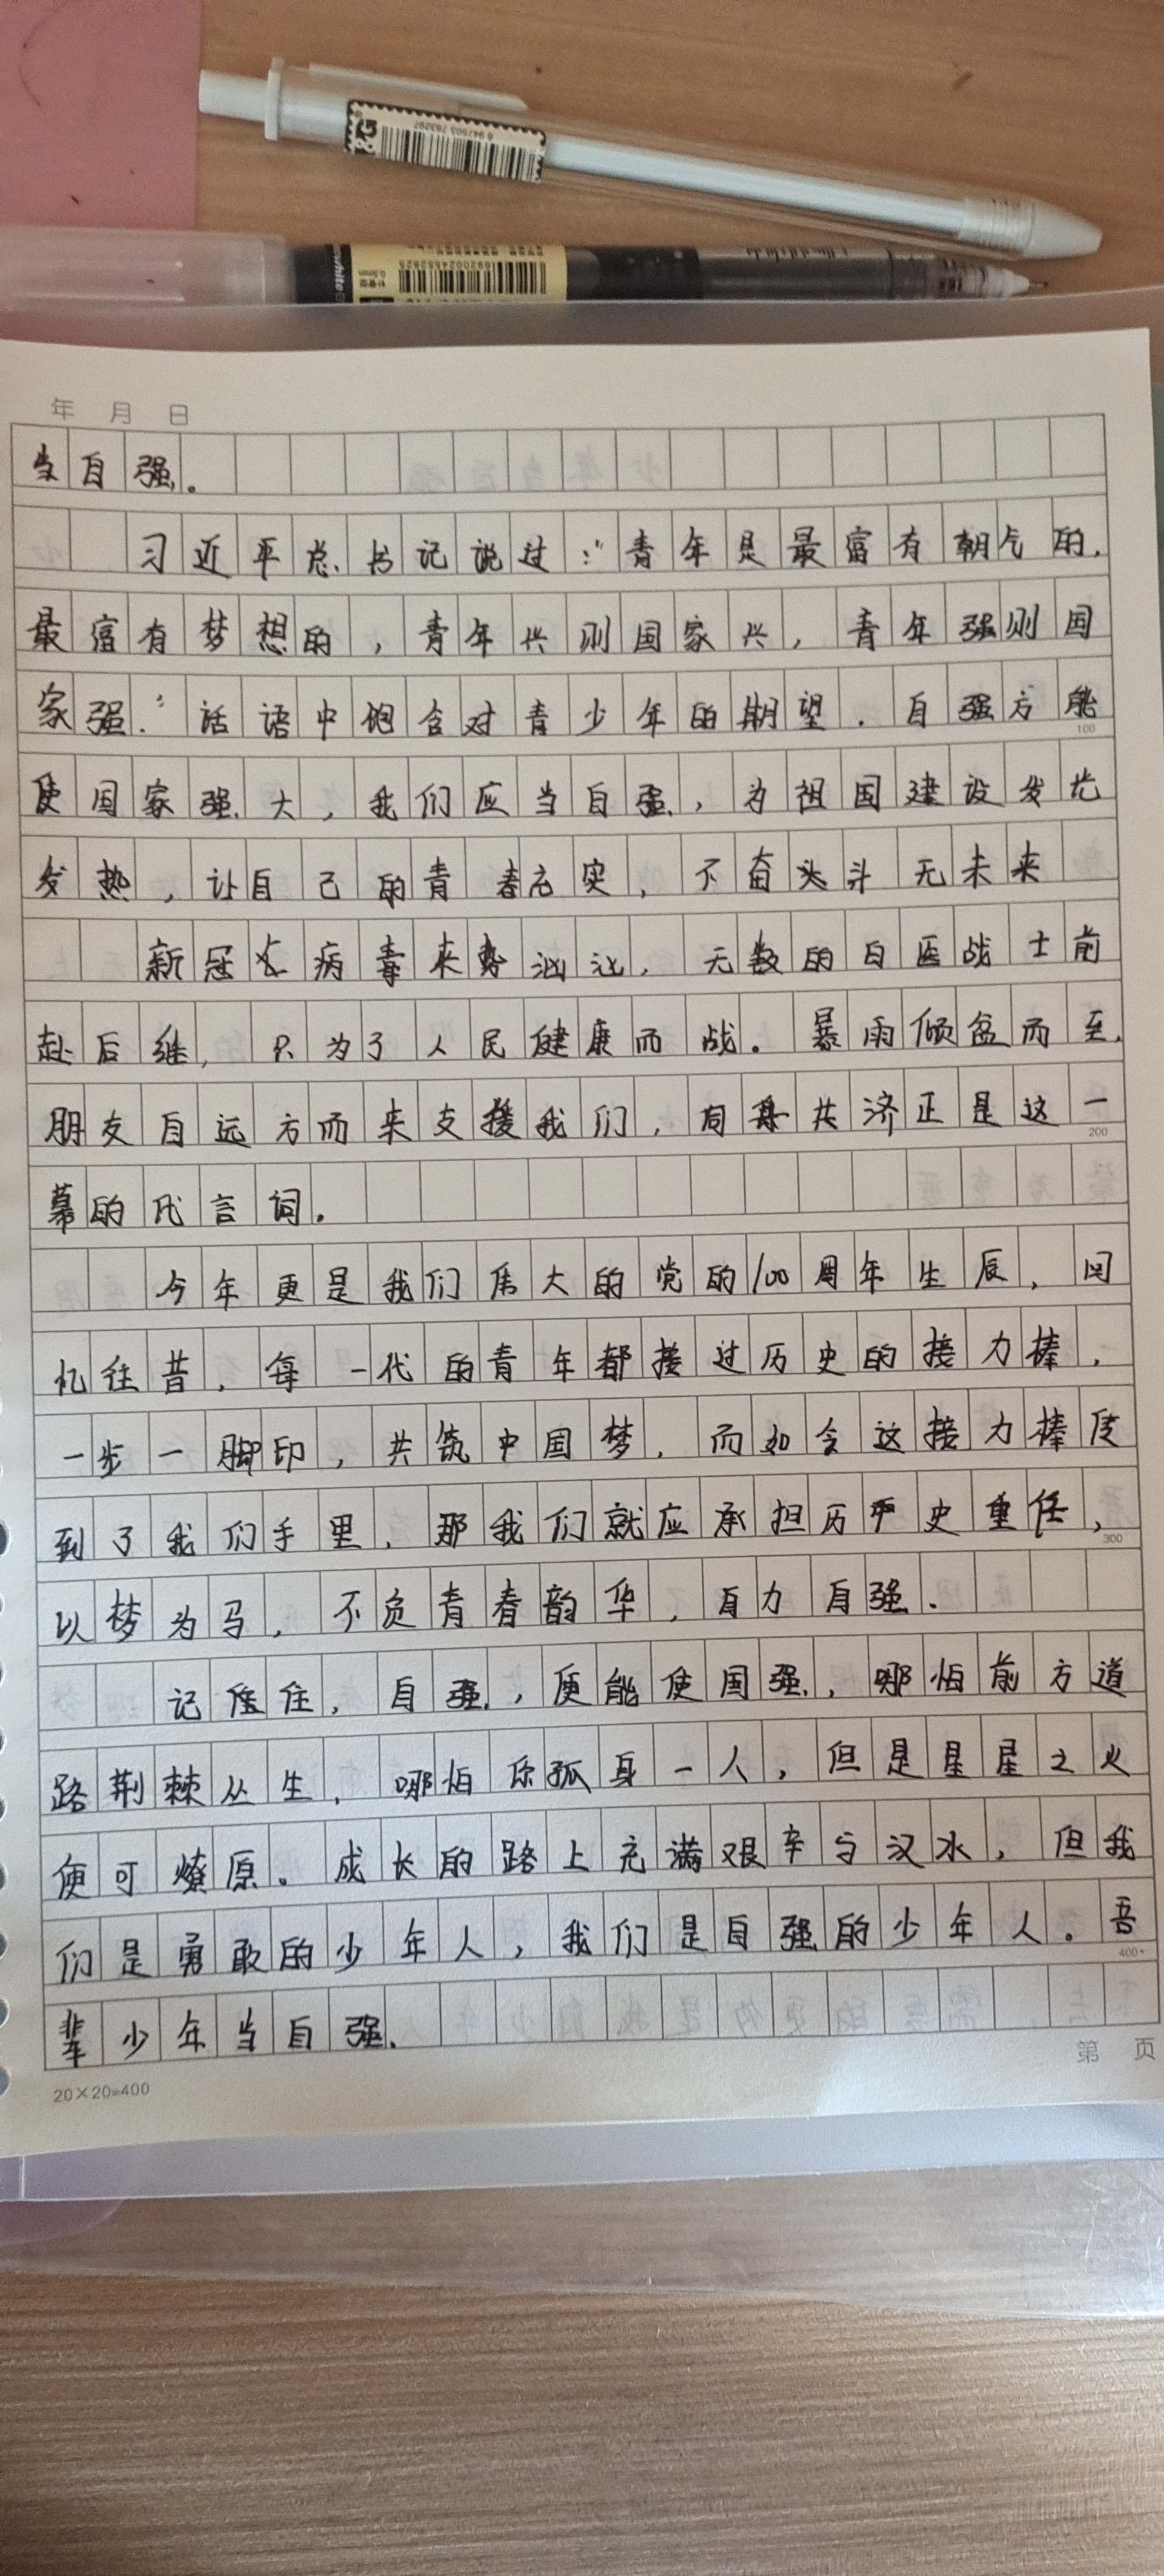 6 947503 783297
6920024552925
0.5mm
年 月 日
当自强。
习近平总书记说过:“青年是最富有朝气的,
最富有梦想的,青年兴则国家兴,青年强则国
家强.”话语中饱含对青少年的期望.自强方能
使国家强大,我们应当自强,为祖国建设发光
发热,让自己的青春充实,不奋斗无未来
新冠病毒来势汹汹,无数的白医战士前
赴后继,只为了人民健康而战。暴雨倾盆而至,
朋友自远方而来支援我们,同舟共济正是这一
100
200
幕的代言词.
今年更是我们伟大的党的100周年生辰,回
忆往昔,每一代的青年都接过历史的接力棒,
一步一脚印,共筑中国梦,而如今这接力棒传
到了我们手里,那我们就应承担历史重任,
300
以梦为马,不负青春韵华,自力自强.
记住,自强,便能使国强,哪怕前方道
路荆棘丛生,哪怕你孤身一人,但是星星之火
便可燎原。成长的路上充满艰辛与汉水,但我
们是勇敢的少年人,我们是自强的少年人。吾
400
辈少年当自强.
第 页
20×20=400